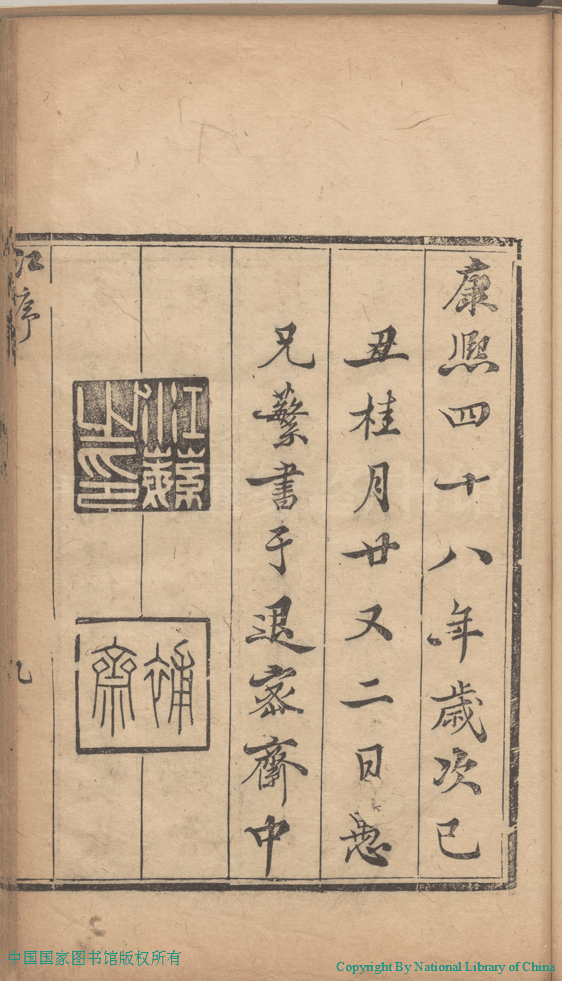 康熙四十八年歲次己
丑桂月廿又二日愚
兄蘩書于退密齋中
江蘩之印
補齋
江序
中国国家图书馆版权所有
Copyright By National Library of China